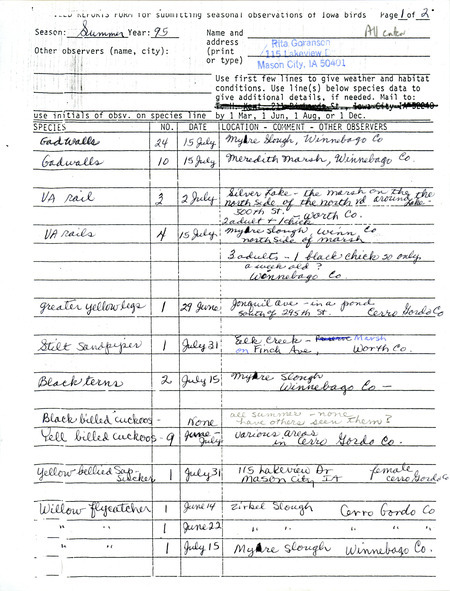 FIELD REPORTS FORM for submitting seasonal observations of Iowa birds Page 1 of 2
Season: Summer Year: 95
Name and address (print or type)
Rita Goranson
115 Lakeview Dr
Mason City, IA 50401
Other observers (name, city):
Use first few lines to give weather and habitat
conditions. Use line(s) below species data to
give additional details, if needed. Mail to:
use initials of obsv. on species line by 1 Mar, 1 Jun, 1 Aug, or 1 Dec.
SPECIES NO. DATE LOCATION - COMMENT - OTHER OBSERVERS
Gadwalls 24 15 July Myhre Slough, Winnebago Co
Gadwalls 10 15 July Meredith Marsh, Winnebago Co.
VA rail 3 2 July Silver Lake - the marsh on the
north side of the north rd around the Lake -
500th St. - Worth Co.
2 adult + 1 chick
VA rails 4 15 July Myhre Slough, Winn Co
north side of marsh
3 adults - 1 black chick so only
a week old?
Winnebago Co.
greater yellowlegs 1 29 June Jonquil Ave - in a pond
south of 295th St. Cerro Gordo Co
Stilt Sandpiper 1 July 31 Elk Creek - Marsh
on Finch Ave, Worth Co.
Black terns 2 July 15 Myhre Slough
Winnebago Co -
Black billed cuckoos - None all summer - none
have others seen them?
Yell billed cuckoos - 9 June July various areas
in Cerro Gordo Co.
Yellow bellied Sap-
sucker 1 July 31 115 Lakeview Dr female
Mason City IA Cerro Gordo Co
Willow flycatcher 1 June 14 Zirbel Slough Cerro Gordo Co
" " 1 June 22 " " " "
" " 1 July 15 Myhre Slough Winnebago Co.